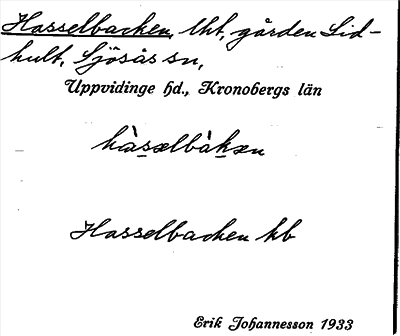 Hasselbacken, lht, gården Lid-
hult, Sjösås sn,
Uppvidinge hd., Kronobergs län
hàsælbàkæn
Hasselbacken kb
Erik Johannesson 1933